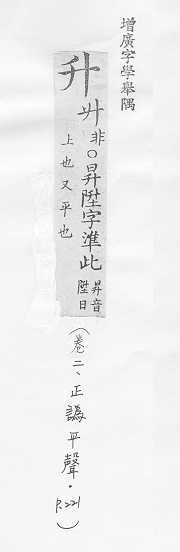 增廣字學舉隅
升
廾非○昇陞字準此
昇音
陞日
上也又平也
(卷二、正譌平聲·P.221)